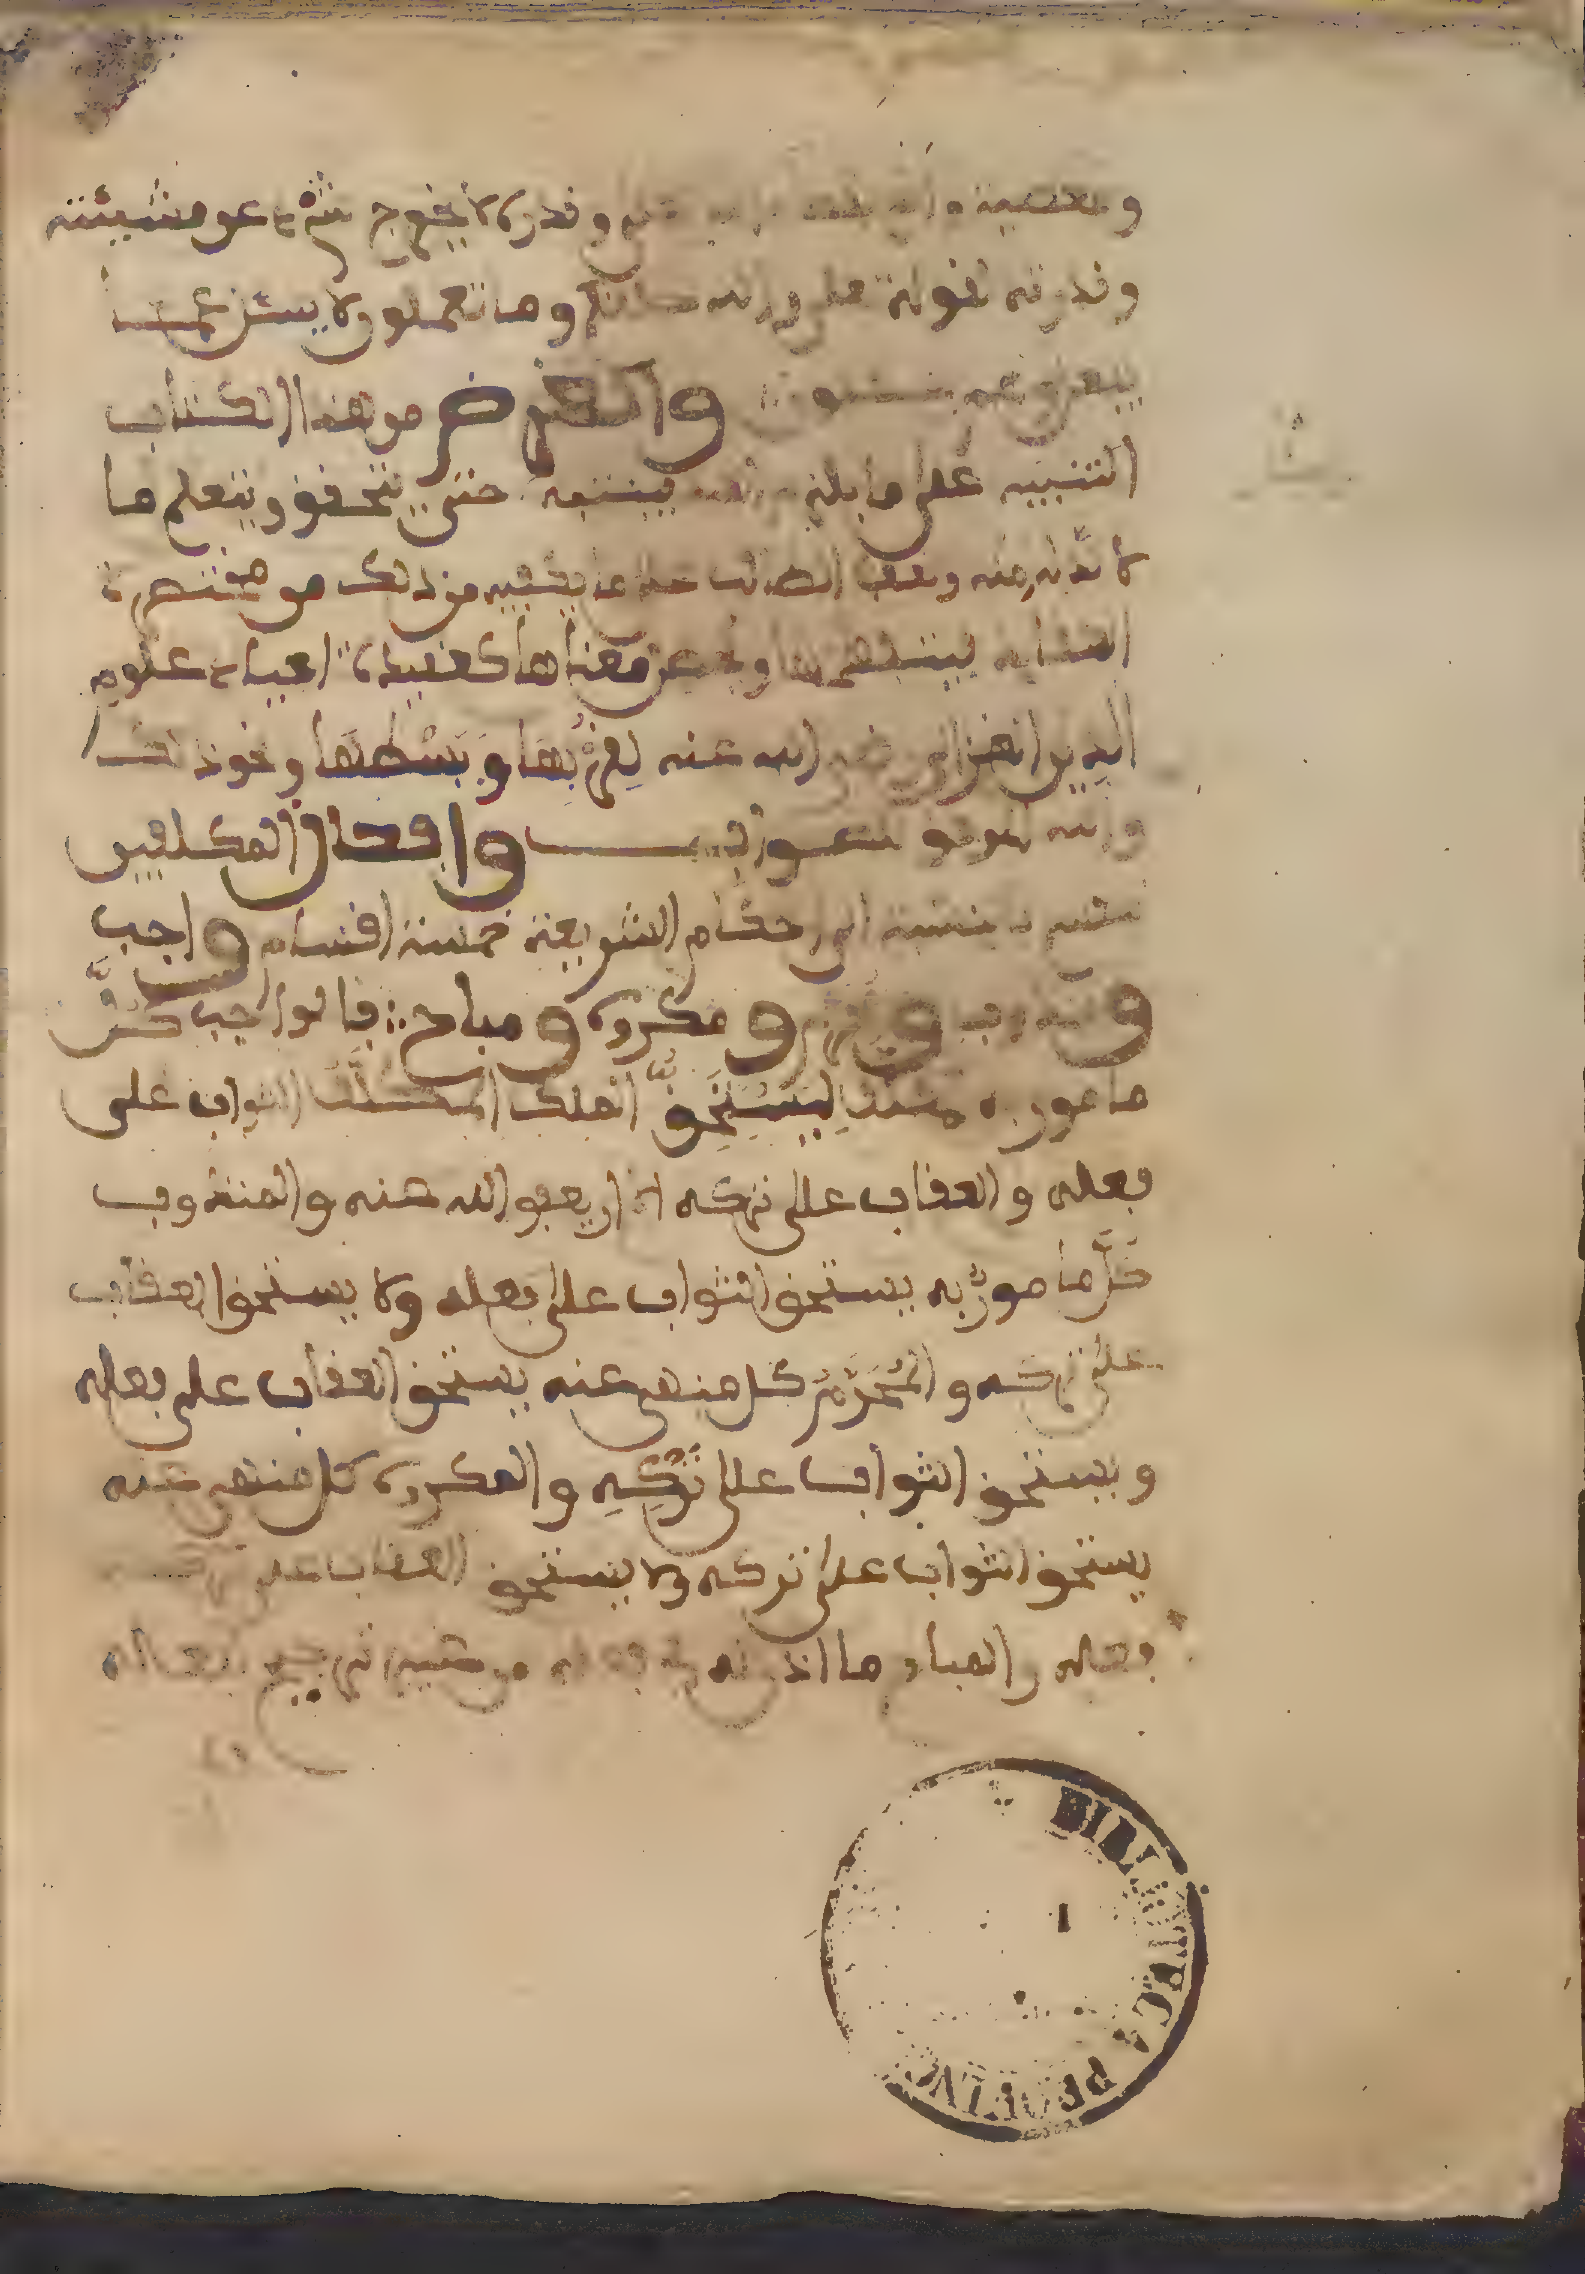 ومعصية وقدره لا يخرج شيء عن مشيئته
وقدرته لقوله تعلى والله خلقكم وما تعملون لا يسئل عما
يفعل وهم يسئلون والغرض من هذا الكتاب
التنبيه على ما يلزم حتى يتحقق ويتعلم ما
لا بد له منه ويقف الطالب على ما يكفيه من ذلك من مختصرة
معناها كعقيدة احياء علوم
الدين الغزالي رضي الله عنه لِقُرْبِهَا وَبَسْطِهَا ونحو ذلك
والله الموفق للصواب وافعال المكلفين
تنقسم بالنسبة الى احكام الشريعة خمسة اقسام واجب
ومندوب ومحرم ومكروه ومباح فالواجب كلُّ
مامور به يَسْتَحِقُّ المكلَّف الثواب على
فعله والعقاب على تركه الا ان يعفو الله عنه والمندوب
كلُّ مامورٍ به يستحق الثواب على فعله ولا يستحق العقاب
على تركه والمُحَرَّمُ كل منهى عنه يستحق العقاب على فعله
ويستحق الثواب على تَرْكِهِ والمكروه كل منهى عنه
يستحق الثواب على تركه ولا يستحق العقاب على
فعله والمباح ما اذن له في فعله من غير ترجيح
BIBLIOTECA PUBLICA